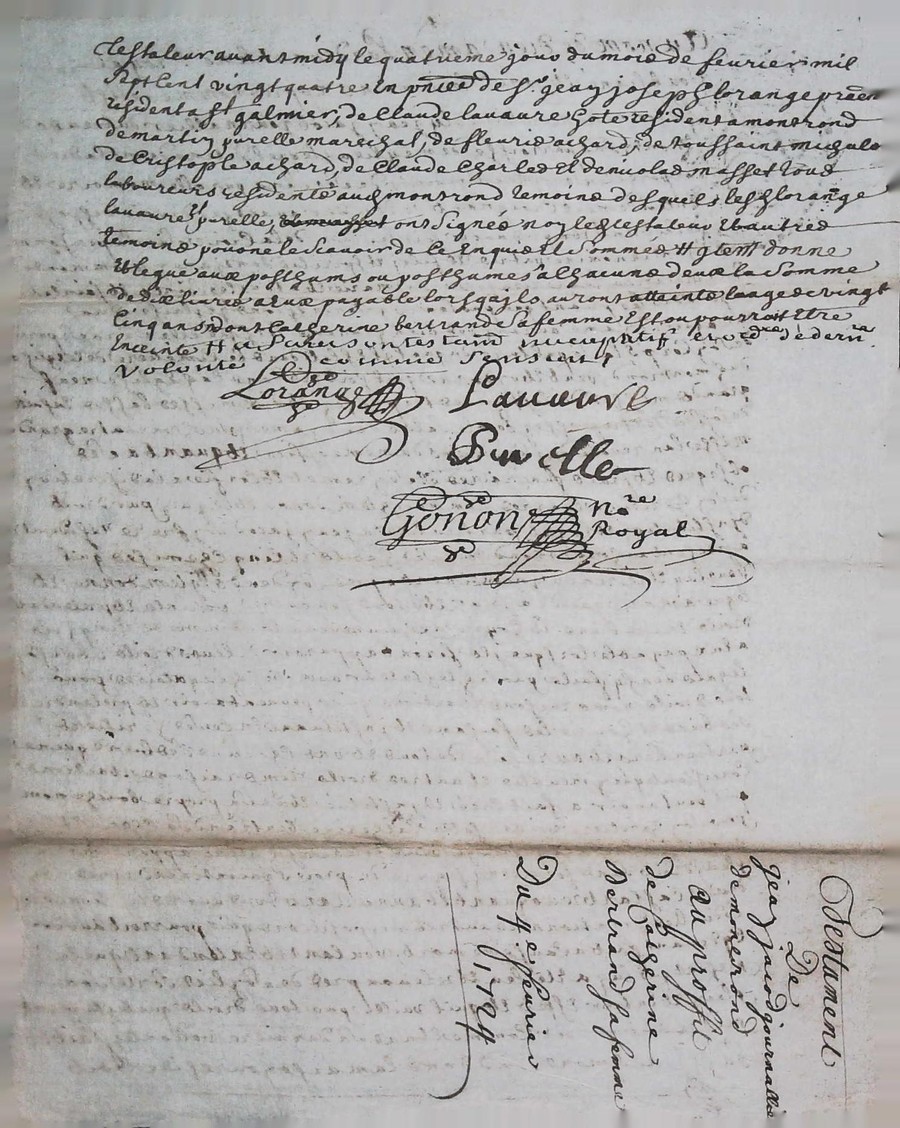 testateur avant midy le quatrieme jour du mois de feurier mil
sept cent vingt quatre en pnce de sr jean joseph lorange praen
résident a st galmier, de Claude lauaure hote résident a montrond
de martin purelle marechal, de fleurie achard, de toussaint michalo
de Cristophle achard, de Claude Charles et de nicolas masset tous
laboureurs résidents aud montrond temoins desquels les sr lorange
lauaure et purelle, ont signés non le testateur et autres
temoins pour ne le scauoir de ce enquis et sommes # item donne
et legue aux posthums ou posthumes a chacuns deux la somme
de dix liures a eux payable lorsqu'ils auront attaints lange de vingt
cinq ans dont Catherine bertrand sa femme est ou pourroit etre
enceinte # a sur son testam nuncupatif et ord de dern
volonté comme
Lorange Lauaure
Purelle
Gonon nre
Royal
Testament
De
jean jacod journallie
de montrond
au proffit
de Caterine
Bertrand sa femme
Du 4e feurier
1724